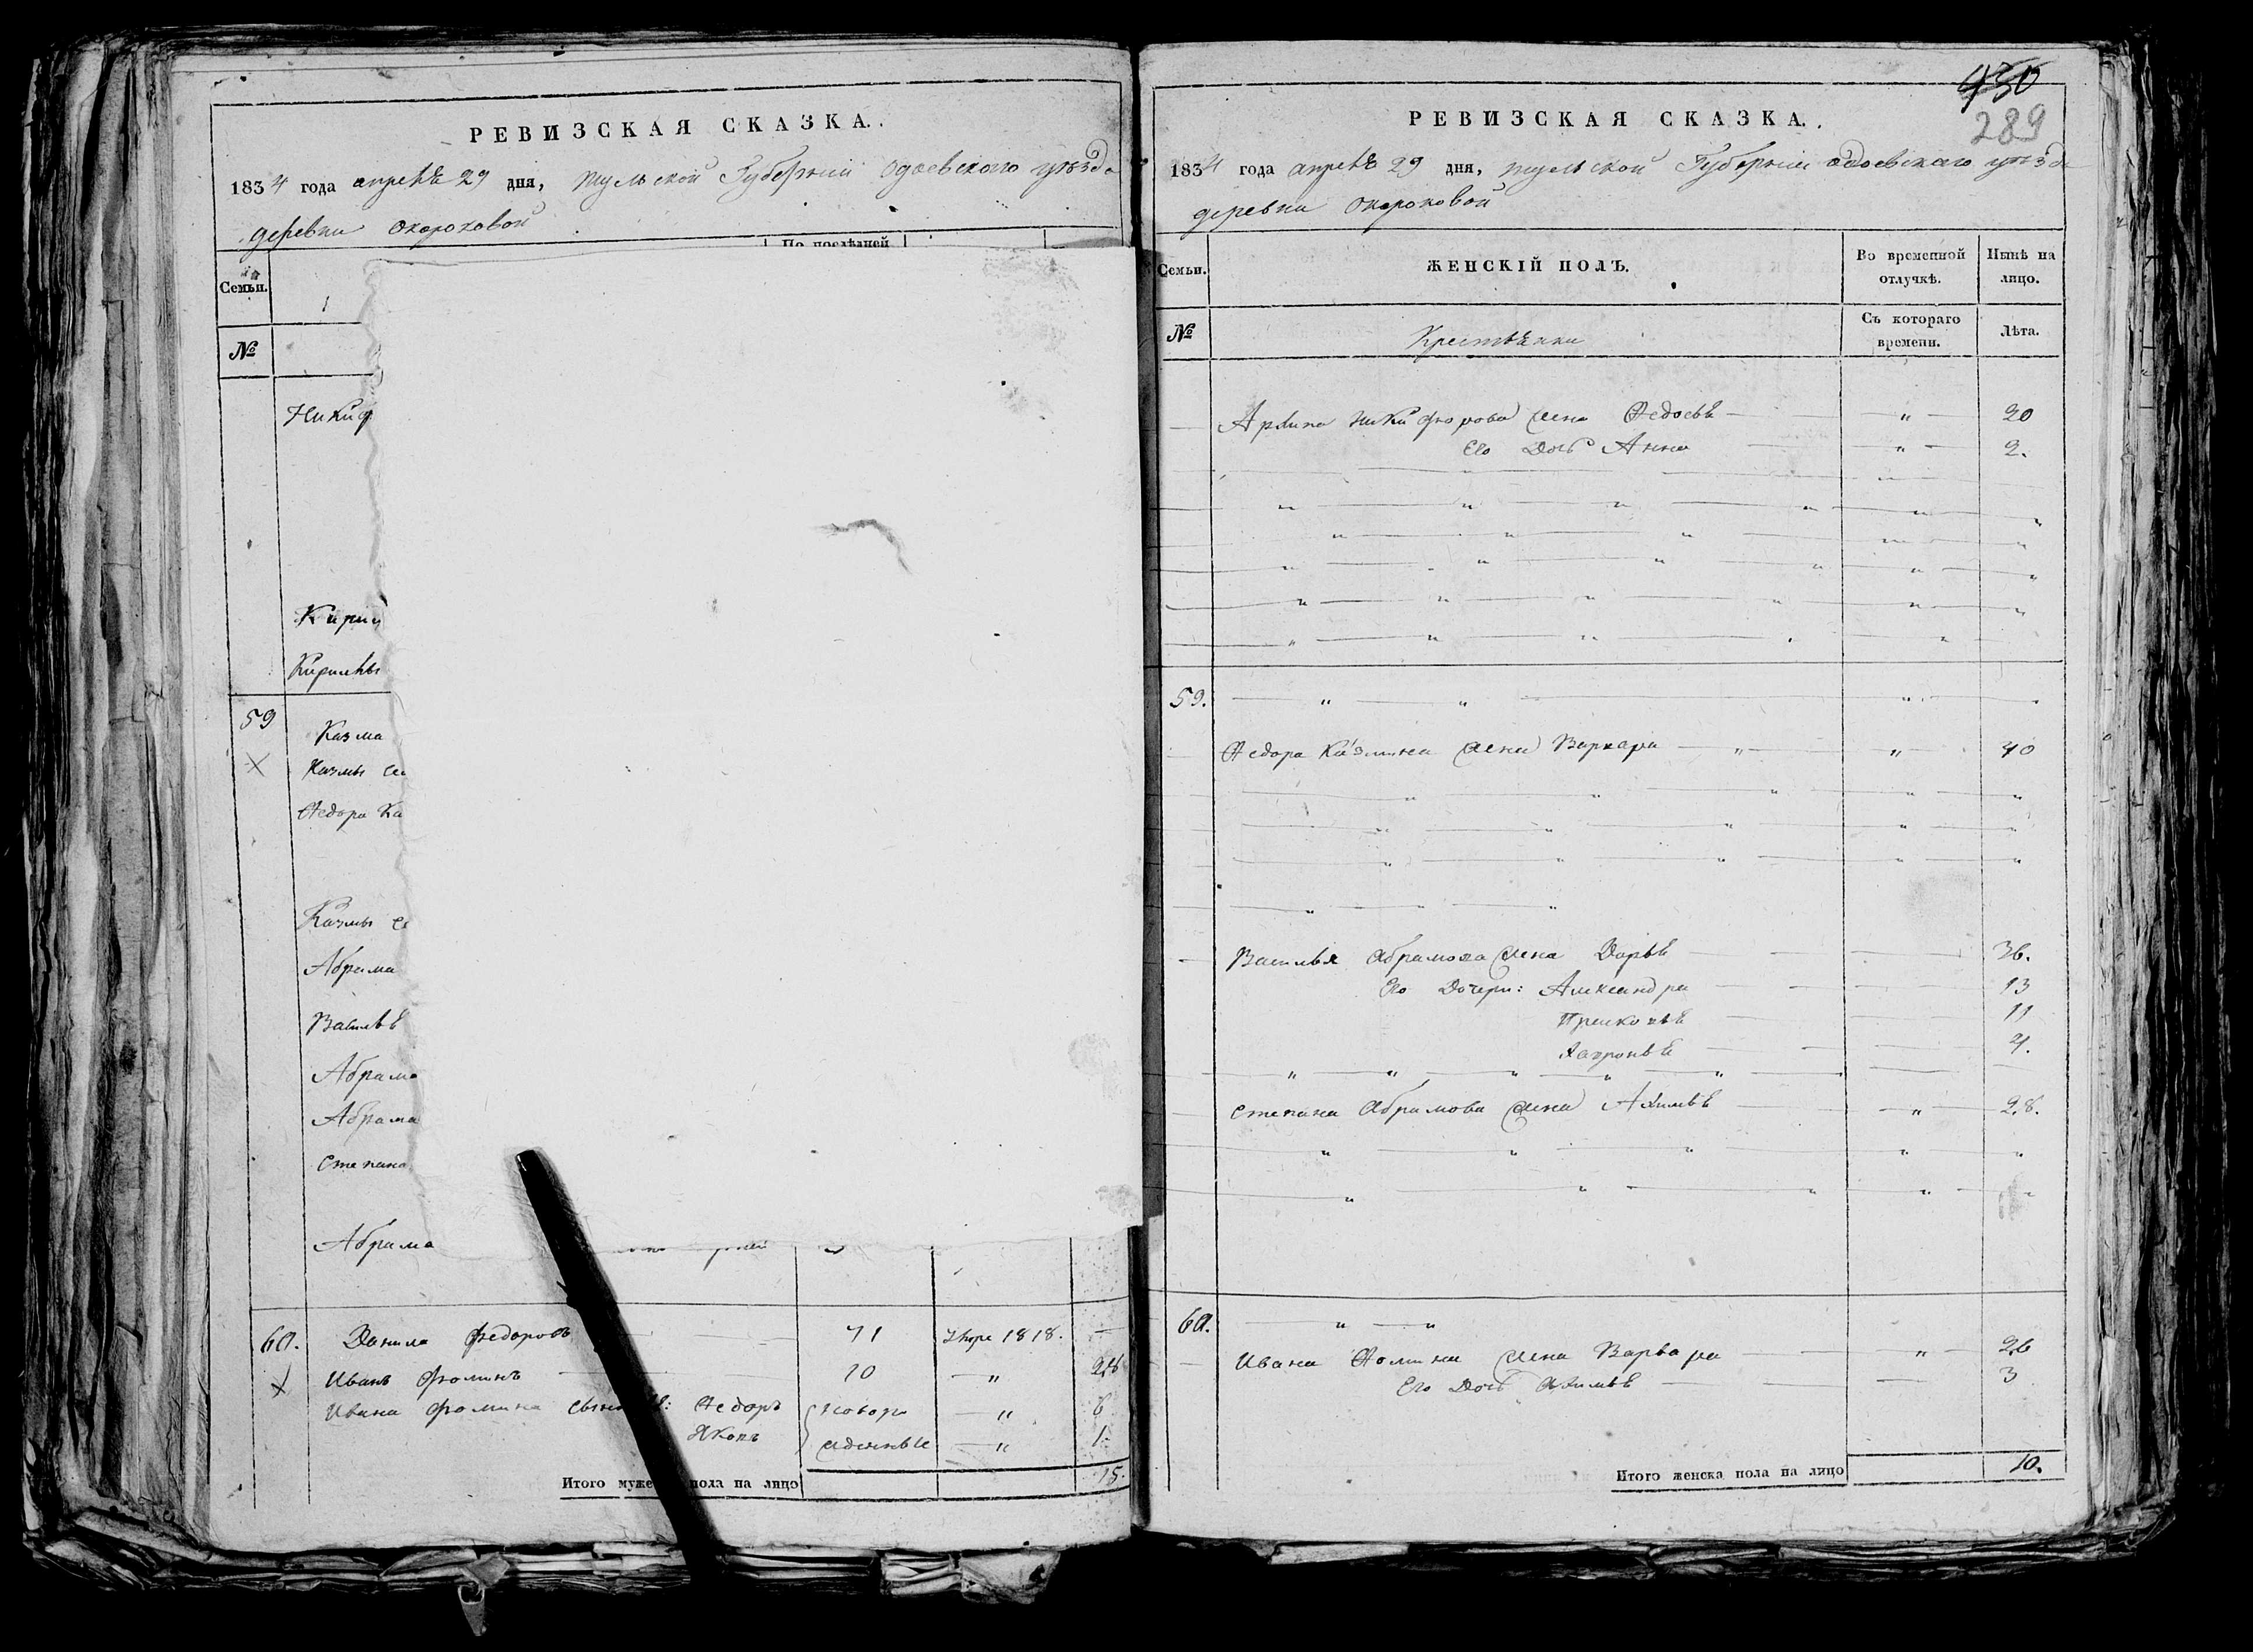 РЕВИЗСКАЯ СКАЗКА.
1834 года апрелѣ 29 дня, тульской Губерніи одоевского уѣзда
деревни окороковой
По послѣдней
Семьи.
№
Никиф
Кирил
Кирилы
59
Казма
Казмы
Федора Ка
Казмы
Абрама
Василья
Абрама
Абрама
Степана
Абрама
60. Данила Федоровъ 71 умре 1818.
Иванъ Фоминъ 10 "
Ивана Фомина Федоръ новоро " 6
Яковъ жденные " 1
Итого муже пола на лицо 15.
430
289
РЕВИЗСКАЯ СКАЗКА.
1834 года апрелѣ 29 дня, тульской Губерніи одоевскаго уѣзда
деревни окороковой
Семьи. ЖЕНСКІЙ ПОЛЪ. Во временной отлучкѣ. Нынѣ на лицо.
№ Крестьянки Съ котораго времени. Лѣта.
никифорова жена Федосья " 20
Его Дочь Анна " 2.
59.
Федора Казмина жена Варвара " " 40
Василья абрамова жена Дарья 36.
Его Дочери: Александра 13
Прасковья 11
4.
степана абрамова жена Афимья " 28.
60. " "
Ивана Фомина жена Варвара " 26
Его Дочь Афимья 3
Итого женска пола на лицо 10.